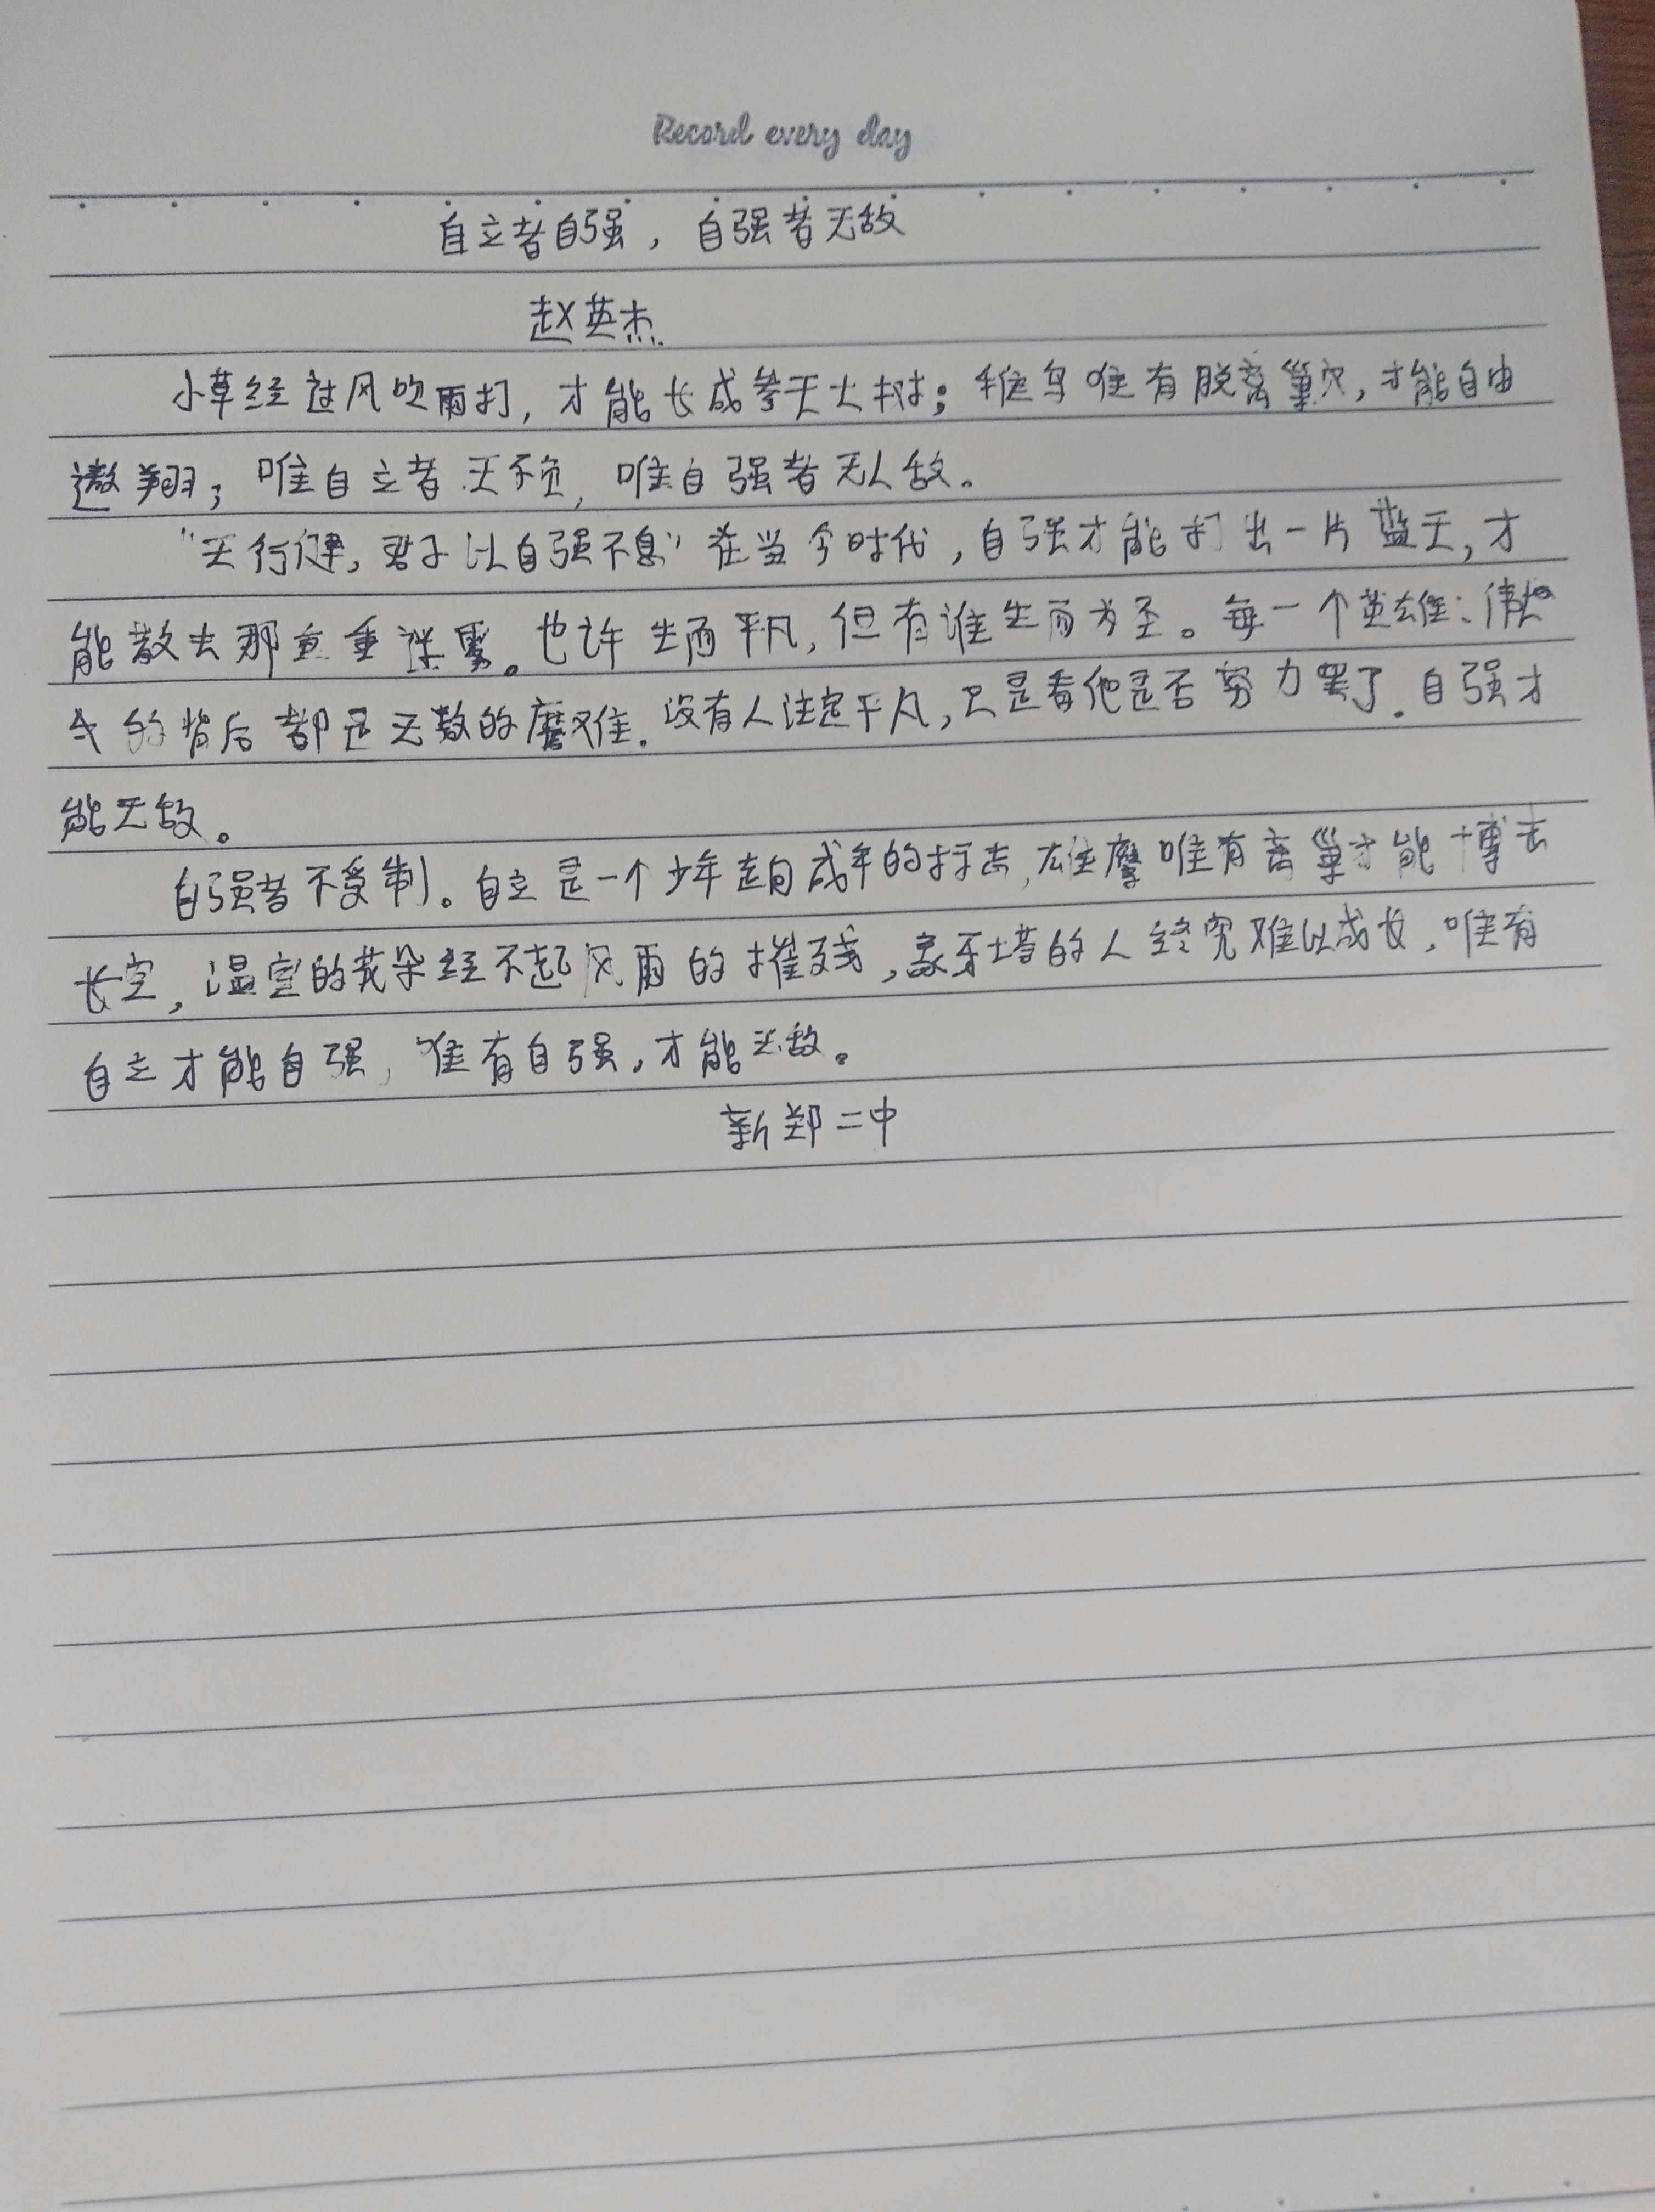 Record every day
自立者自强，自强者无敌
赵英杰
小草经过风吹雨打，才能长成参天大树；雏鸟唯有脱离巢穴，才能自由
遨翔；唯自立者无不负，唯自强者无人敌。
“天行健，君子以自强不息”在当今时代，自强才能打出一片蓝天，才
能散去那重重迷雾。也许生而平凡，但有谁生而为王。每一个英雄、伟
的背后都是无数的磨难。没有人注定平凡，只是看他是否努力罢了。自强才
能无敌。
自强者不受制。自立是一个少年走向成年的标志，雄鹰唯有离巢才能博击
长空，温室的花朵经不起风雨的摧残，象牙塔的人终究难以成长，唯有
自立才能自强，唯有自强，才能无敌。
新郑二中